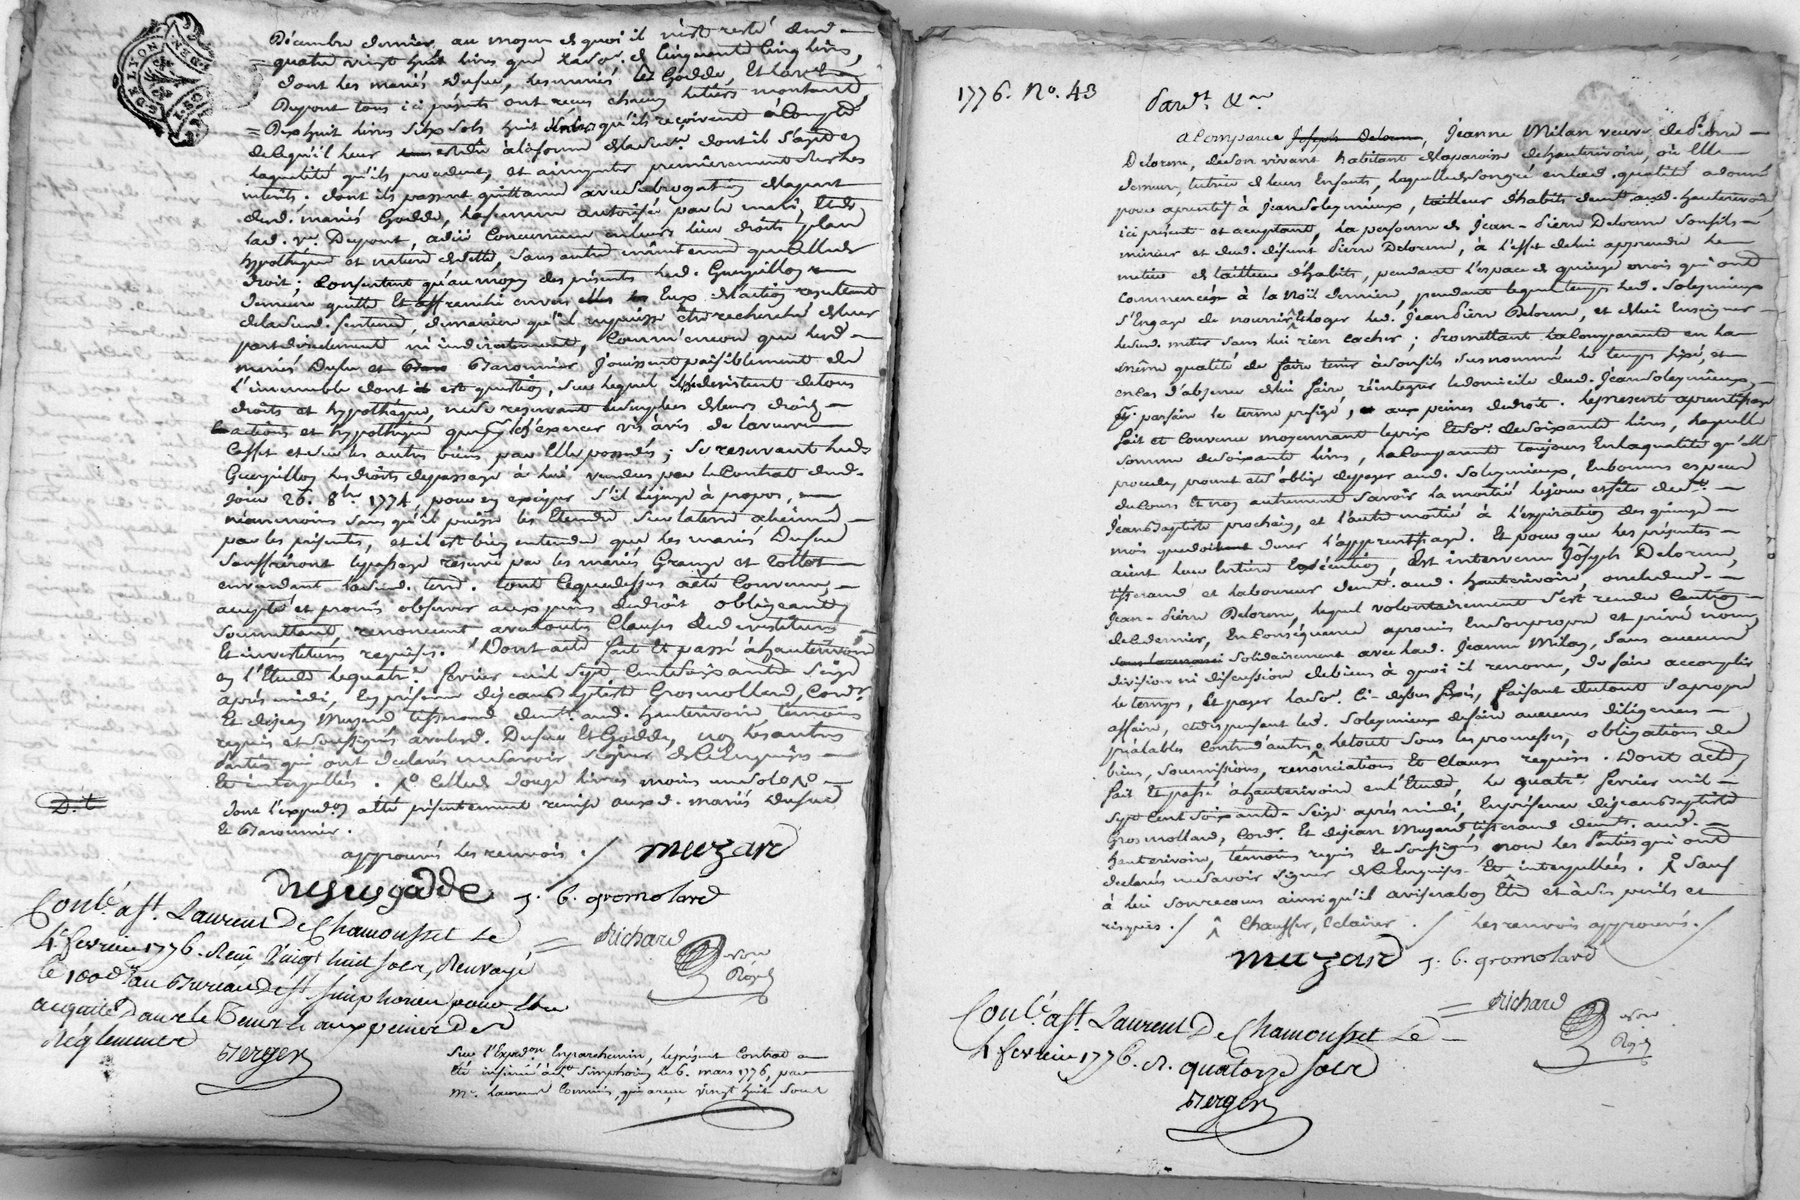 Décembre dernier, au moyen de quoi il n'est resté dud.
quatre vingt huit livres que la so.e de cinquante cinq livres,
dont les mariés Dufue, les mariés Godde, et la v.e
Dupont tous ici presents ont reçus chacun le tiers montant
Dixhuit livres six sols huit deniers qu'ils reçoivent à Compte
de ce qu'il leur est dû à la forme de la dont il s'agit en
la qualité qu'ils procedent, et à imputer premièrement sur les
intérêts. dont ils passent quittance avec subrogation de la part
desd. mariés Godde, la femme autorisée par le mari, et de
lad. v.e Dupont, à d'iceux leurs droits, place
hypothèque et nature de dette, sans autre maintenue que de leur
droit; Consentent qu'au moyen des présentes led. Guerpillon
demeure quitte et affranchi envers eux de l'action resultant
de la susd. sentence, de manière qu'il ne puisse être recherché de leur
part directement ni indirectement, comm'encore que lesd.
mariés Dufue et Baronnier jouissent paisiblement de
l'immeuble dont est question, sur lequel ils se desistent de tous
droits et hypothèque, ne se reservant de leurs droits
actions et hypothèque que pour les exercer vis à vis de la veuve
Cosset et sur les autres biens par elle possedés; Se reservant led.
Guerpillon les droits de passage à lui vendus par le Contrat dud.
jour 26. 8bre 1774. pour en exciper s'il le juge à propos,
néanmoins sans qu'il puisse les étendre sur la terre
par les présentes, et il est bien entendu que les mariés Dufue
souffriront le passage réservé par les mariés Grange et
en vendant lad. terre. tout ce que dessus a été convenu,
accepté et promis observer aux peines de droit, obligeant
soumettant, renonçant avec toutes clauses de devestiture
et investiture requises. Dont acte fait et passé à hauterivoire
en l'Etude le quatre fevrier mil sept Cent soixante Seize
après midi, En présence de jean baptiste Grosmollard, Cord.r
et de jean Muzard tisserand dem.t aud. hauterivoire témoins
requis et soussignés avec led. Dufue et Godde, non les autres
parties qui ont declarés ne savoir signer de ce Enquises
et interpellés. celle de douze livres moins un sol
D.t
dont l'expedon a été présentement remise auxd. mariés Dufue
et Baronnier.
approuvés les renvois. / muzard
dufues godde j. b. gromolard
Richard
Con.lé à S.t Laurent De Chamousset Le
4. fevrier 1776. Reçu Vingt huit sols, Renvoyé
le 100.e au Bureau de S.t Simphorien pour Etre
acquitté Dans le Temps & aux peines Des
Réglemens
Berger
not.re Royal
Sur l'Expedon En parchemin, le présent Contrat a
été insinué à S.t Simphorien le 6. mars 1776, par
M.r Laurent Commis, qui a reçu vingt huit sous
1776. No. 43
Pard.t &.a
a Comparue Joseph Delorme, Jeanne Milan veuve de Pierre
Delorme, de son vivant habitant de la paroisse de hauterivoire, où Elle
demeure, tutrice de leurs Enfants, laquelle de son gré en lad. qualité a donné
pour aprentif à Jean Soleymieux, tailleur d'habits dem.t aud. Hauterivoire,
ici présent et acceptant, la personne de Jean-Pierre Delorme son fils
mineur et dud. défunt Pierre Delorme, à l'effet de lui apprendre le
metier de tailleur d'habits, pendant l'espace de quinze mois qui ont
commencés à la Noël dernière, pendant lequel temps led. Soleymieux
s'Engage de nourrir ^ et loger led. Jean Pierre Delorme, et de lui Enseigner
le susd. metier sans lui rien cacher; promettant la Comparante en la
même qualité de faire tenir à son fils susnommé le temps fixé, et
en cas d'absence de lui faire réintegrer le domicile dud. Jean Soleymieux,
parfaire le terme préfixé, aux peines de droit. le present aprentissage
fait et Convenu moyennant le prix et so.e de soixante livres, laquelle
somme de soixante livres, la Comparante toujours En la qualité qu'elle
procède, promet et s'oblige de payer aud. Soleymieux, En bonnes especes
de Cours et non autrement savoir la moitié le jour et fête de s.t
Jean Baptiste prochain, et l'autre moitié à l'expiration des quinze
mois que doit durer l'apprentissage. Et pour que les présentes
aient leur Entière Exécution, Est intervenu Joseph Delorme,
tisserand et laboureur dem.t aud. Hauterivoire, oncle dud.
Jean-Pierre Delorme, lequel volontairement s'est rendu Caution
de ce dernier, En Conséquence a promis En son propre et privé nom
solidairement avec lad. Jeanne Milan, sans aucune
division ni discussion de biens à quoi il renonce, de faire accomplir
le temps, et payer la so.e Ci-dessus fixés, faisant du tout sa propre
affaire, et dispensant led. Soleymieux de faire aucunes diligences
préalables contre d'autres. le tout sous les promesses, obligations de
biens, soumissions, renonciations et clauses requises. Dont acte
fait et passé à hauterivoire en l'Etude, le quatre fevrier mil
sept Cent soixante-Seize après midi, En présence de jean Baptiste
Grosmollard, Cord.r Et de jean Muzard, tisserand dem.t aud.
hauterivoire, témoins requis et soussignés non les Parties qui ont
declarés ne savoir signer de ce Enquises et interpellées. Sauf
à lui son recours ainsi qu'il avisera bon Etre et à ses périls et
risques. / ^ Chauffer, Eclairer. / Les renvois approuvés. /
muzard j. b. gromolard
Richard
not.re Royal
Con.lé à S.t Laurent De Chamousset Le
4. fevrier 1776. R. quatorze sols
Berger